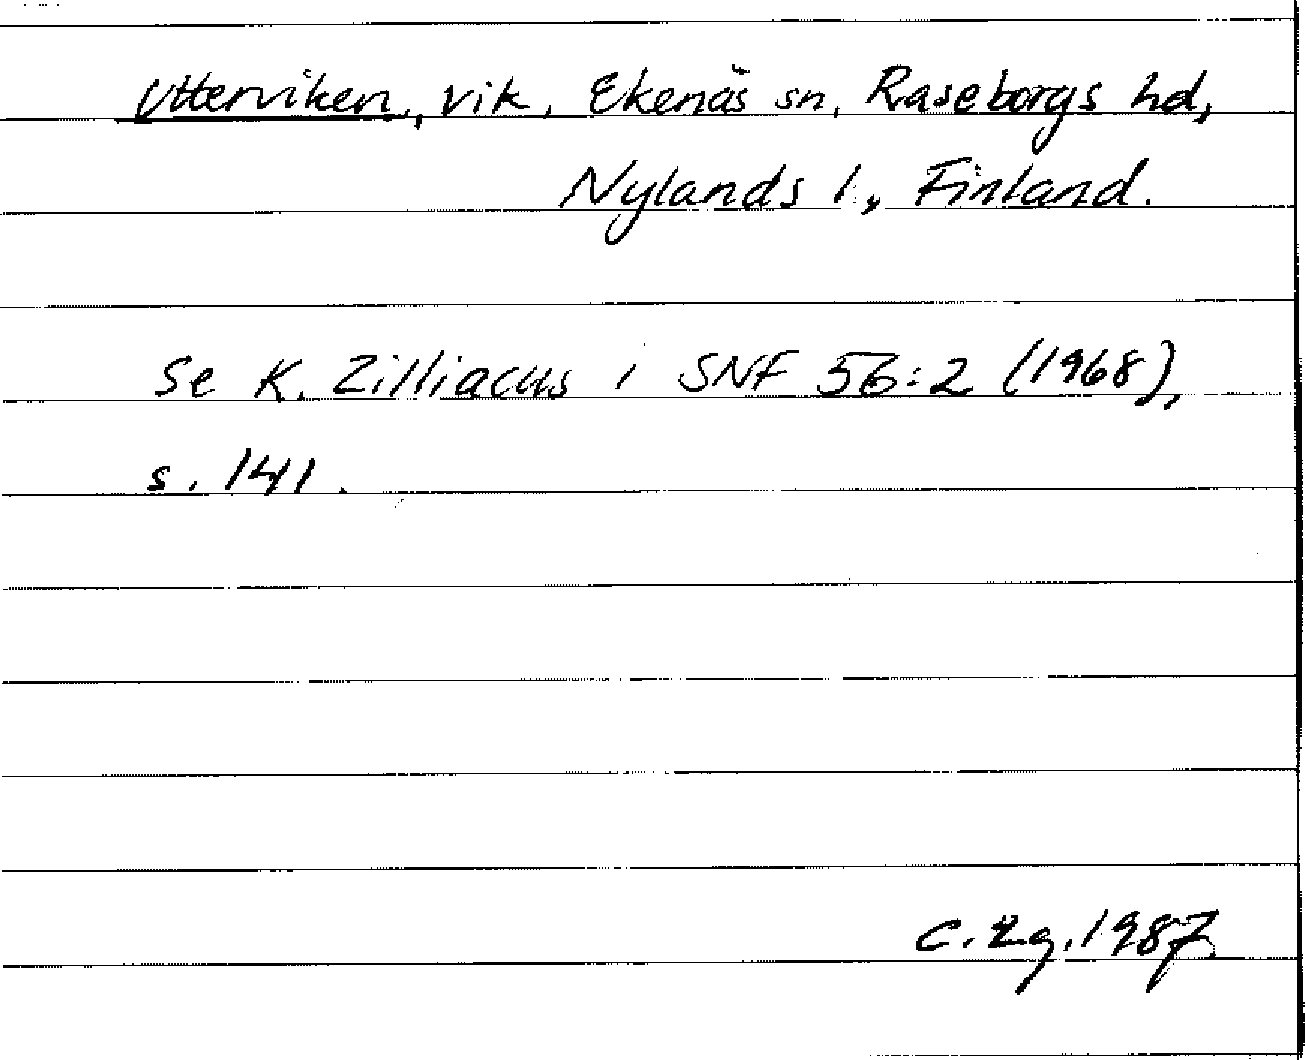 Utterviken, vik, Ekenäs sn, Raseborgs hd,
Nylands l., Finland.
Se K. Zilliacus i SNF 56:2 (1968),
s. 141.
1987